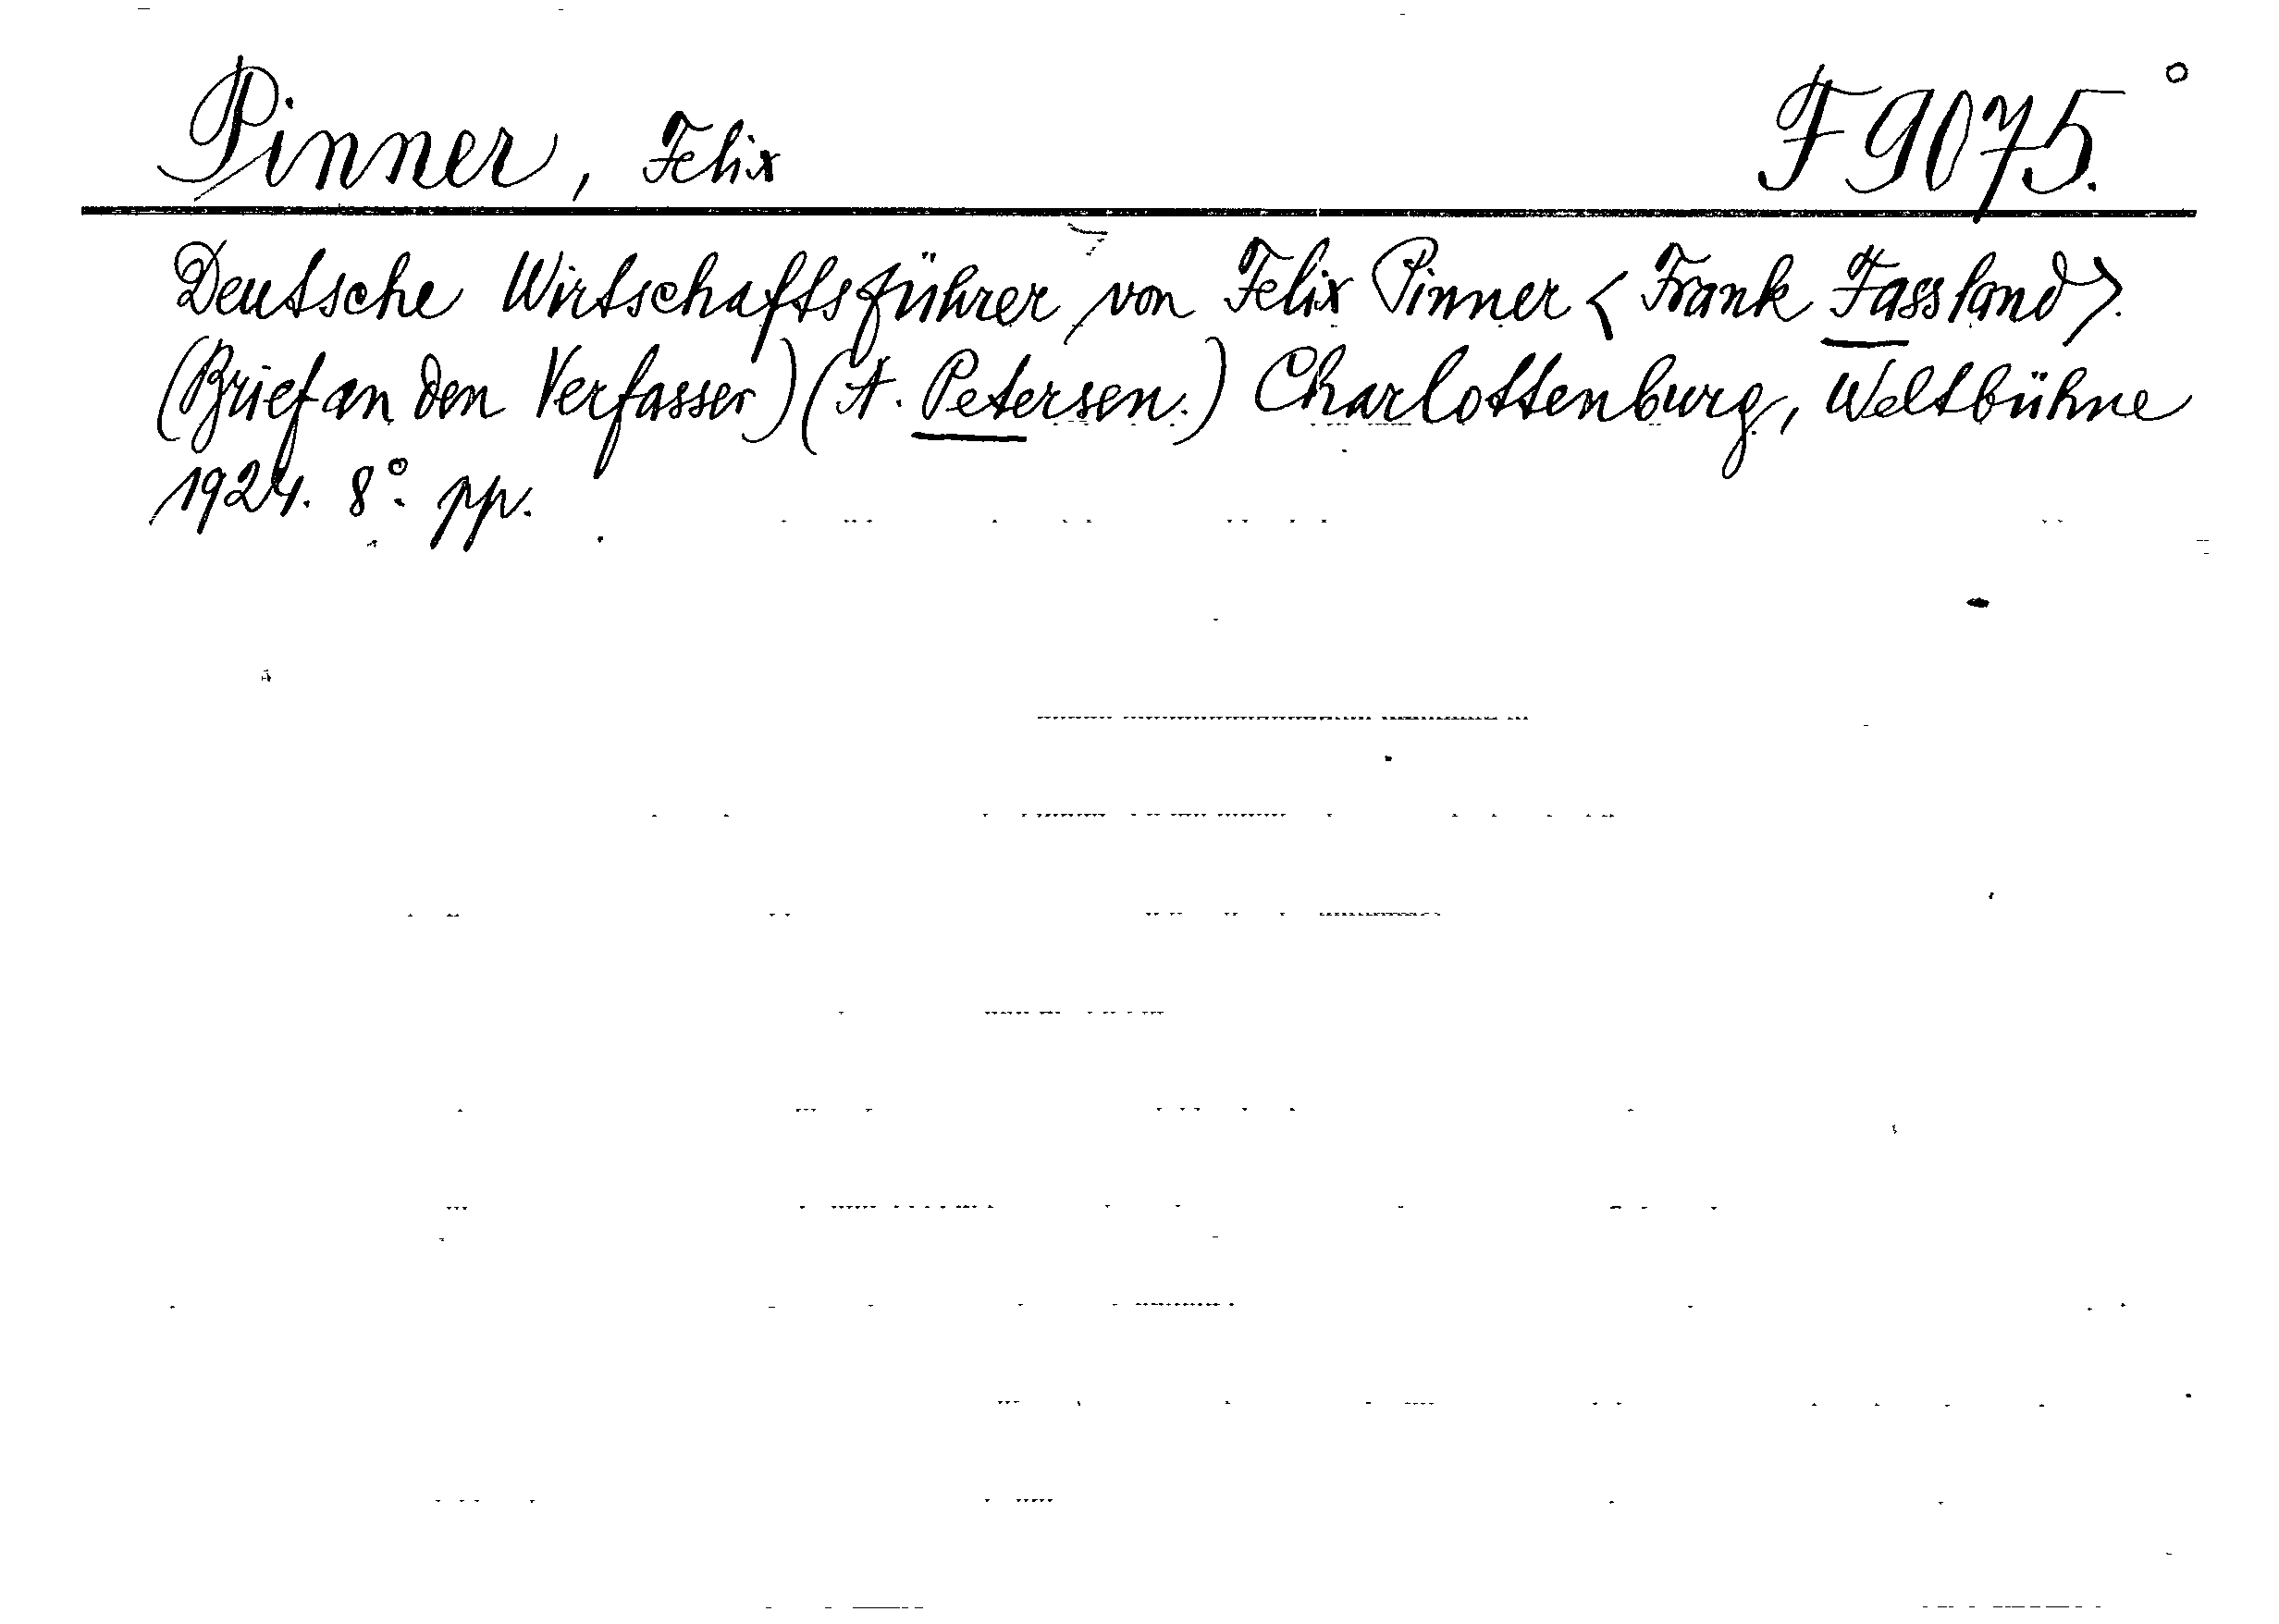 Pinner, Felix F 9075.°
Deutsche Wirtschaftsführer, von Felix Pinner < Frank Fassland>.
(Brief an den Verfasser) (A. Petersen.) Charlottenburg, Weltbühne
1924. 8°. pp.